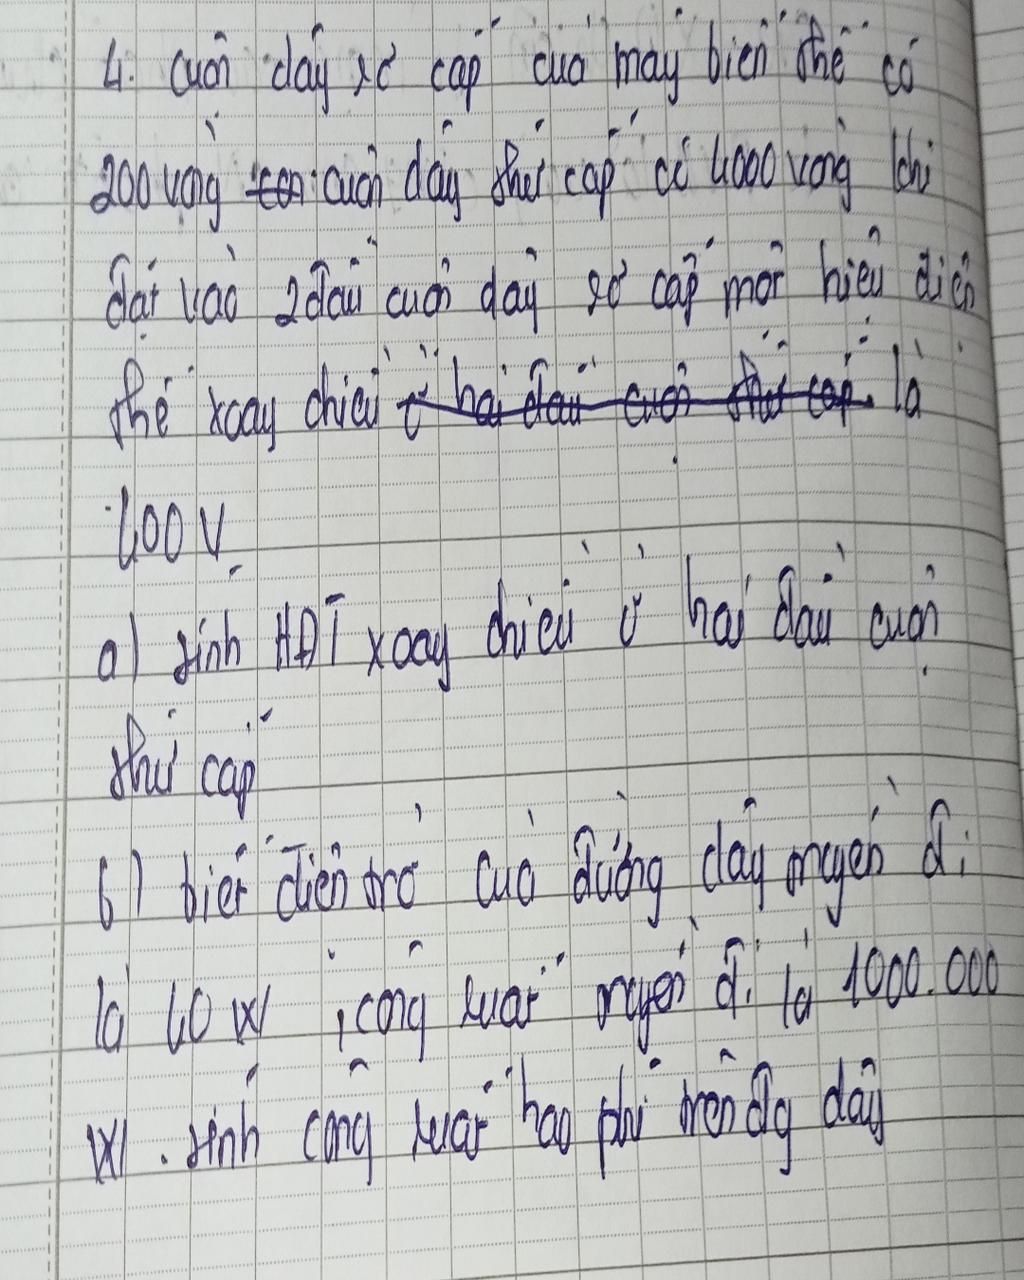 4. cuộn dây sơ cấp của máy biến thế có
200 vòng con cuộn dây thứ cấp có 4000 vòng khi
đặt vào 2 đầu cuộn dây sơ cấp một hiệu điện
thế xoay chiều ở hai đầu cuộn thứ cấp là
400 V
a) tính HĐT xoay chiều ở hai đầu cuộn
thứ cấp
b) biết điện trở của đường dây truyền đi
là 40 W, công suất truyền đi là 1000.000
W. tính công suất hao phí trên đg dây